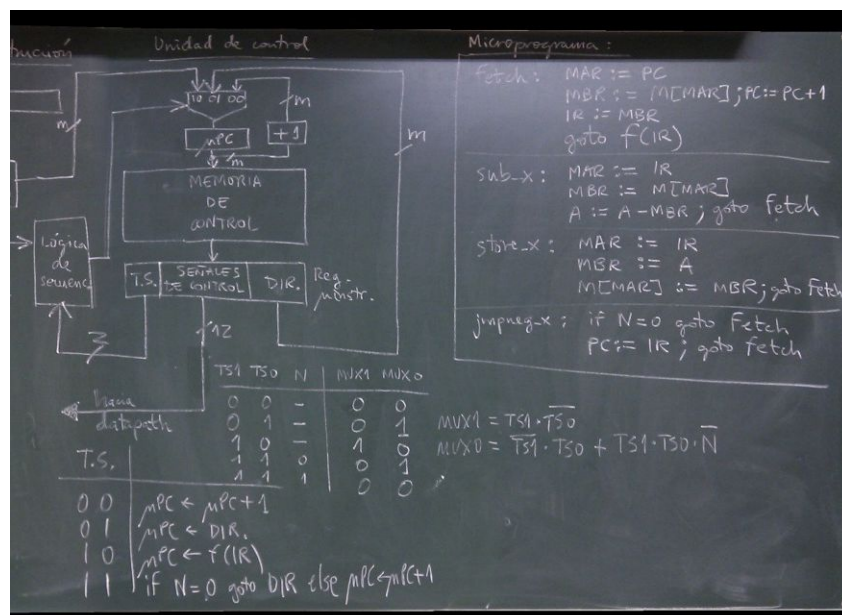 Unidad de control
m
10 01 00
m
μPC
+1
m
m
MEMORIA
DE
CONTROL
Lógica
de
secuenc.
T.S.
SEÑALES
DE CONTROL
DIR.
Reg.
μinstr.
12
hacia
datapath
TS1 TS0 N MUX1 MUX0
0 0 - 0 0
0 1 - 0 1
1 0 - 1 0
1 1 0 0 1
1 1 1 0 0
MUX1 = TS1·\overline{TS0}
MUX0 = \overline{TS1}·TS0 + TS1·TS0·\overline{N}
T.S.
0 0 μPC ← μPC+1
0 1 μPC ← DIR.
1 0 μPC ← f(IR)
1 1 if N=0 goto DIR else μPC←μPC+1
Microprograma:
fetch: MAR := PC
MBR := M[MAR]; PC:= PC+1
IR := MBR
goto f(IR)
sub_x: MAR := IR
MBR := M[MAR]
A := A-MBR; goto fetch
store_x: MAR := IR
MBR := A
M[MAR] := MBR; goto fetch
jmpneg_x: if N=0 goto fetch
PC:= IR; goto fetch